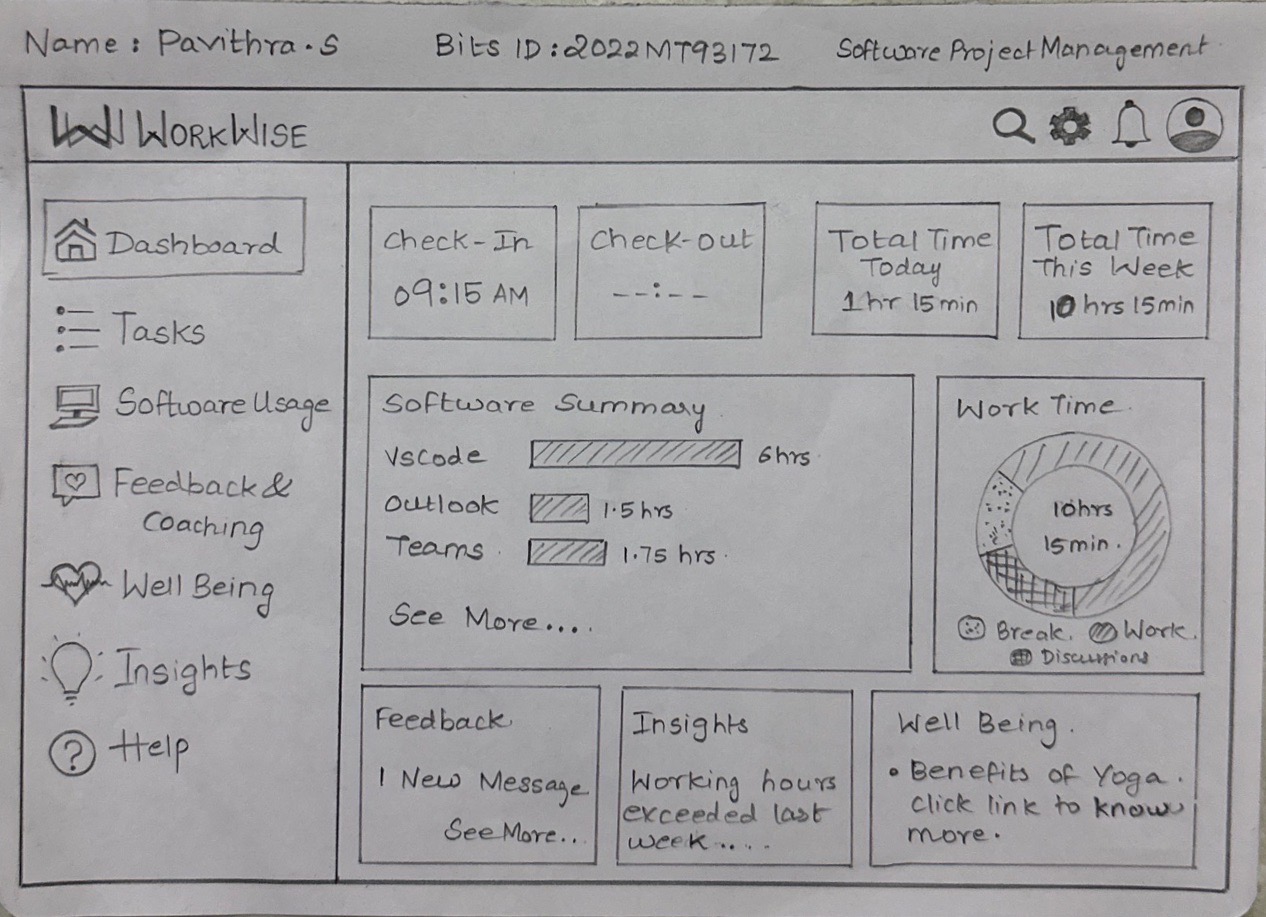 Name : Pavithra.S Bits ID : 2022MT93172 Software Project Management
W WORKWISE
Dashboard
Tasks
Software Usage
Feedback &
Coaching
Well Being
Insights
? Help
Check-In
09:15 AM
Check-out
--:--
Total Time
Today
1 hr 15 min
Total Time
This Week
10 hrs 15 min
Software Summary
Vscode 6 hrs
Outlook 1.5 hrs
Teams 1.75 hrs.
See More....
Work Time
10hrs
15 min.
Break. Work.
Discussions
Feedback
1 New Message
See More...
Insights
Working hours
exceeded last
week.....
Well Being.
• Benefits of Yoga.
click link to know
more.